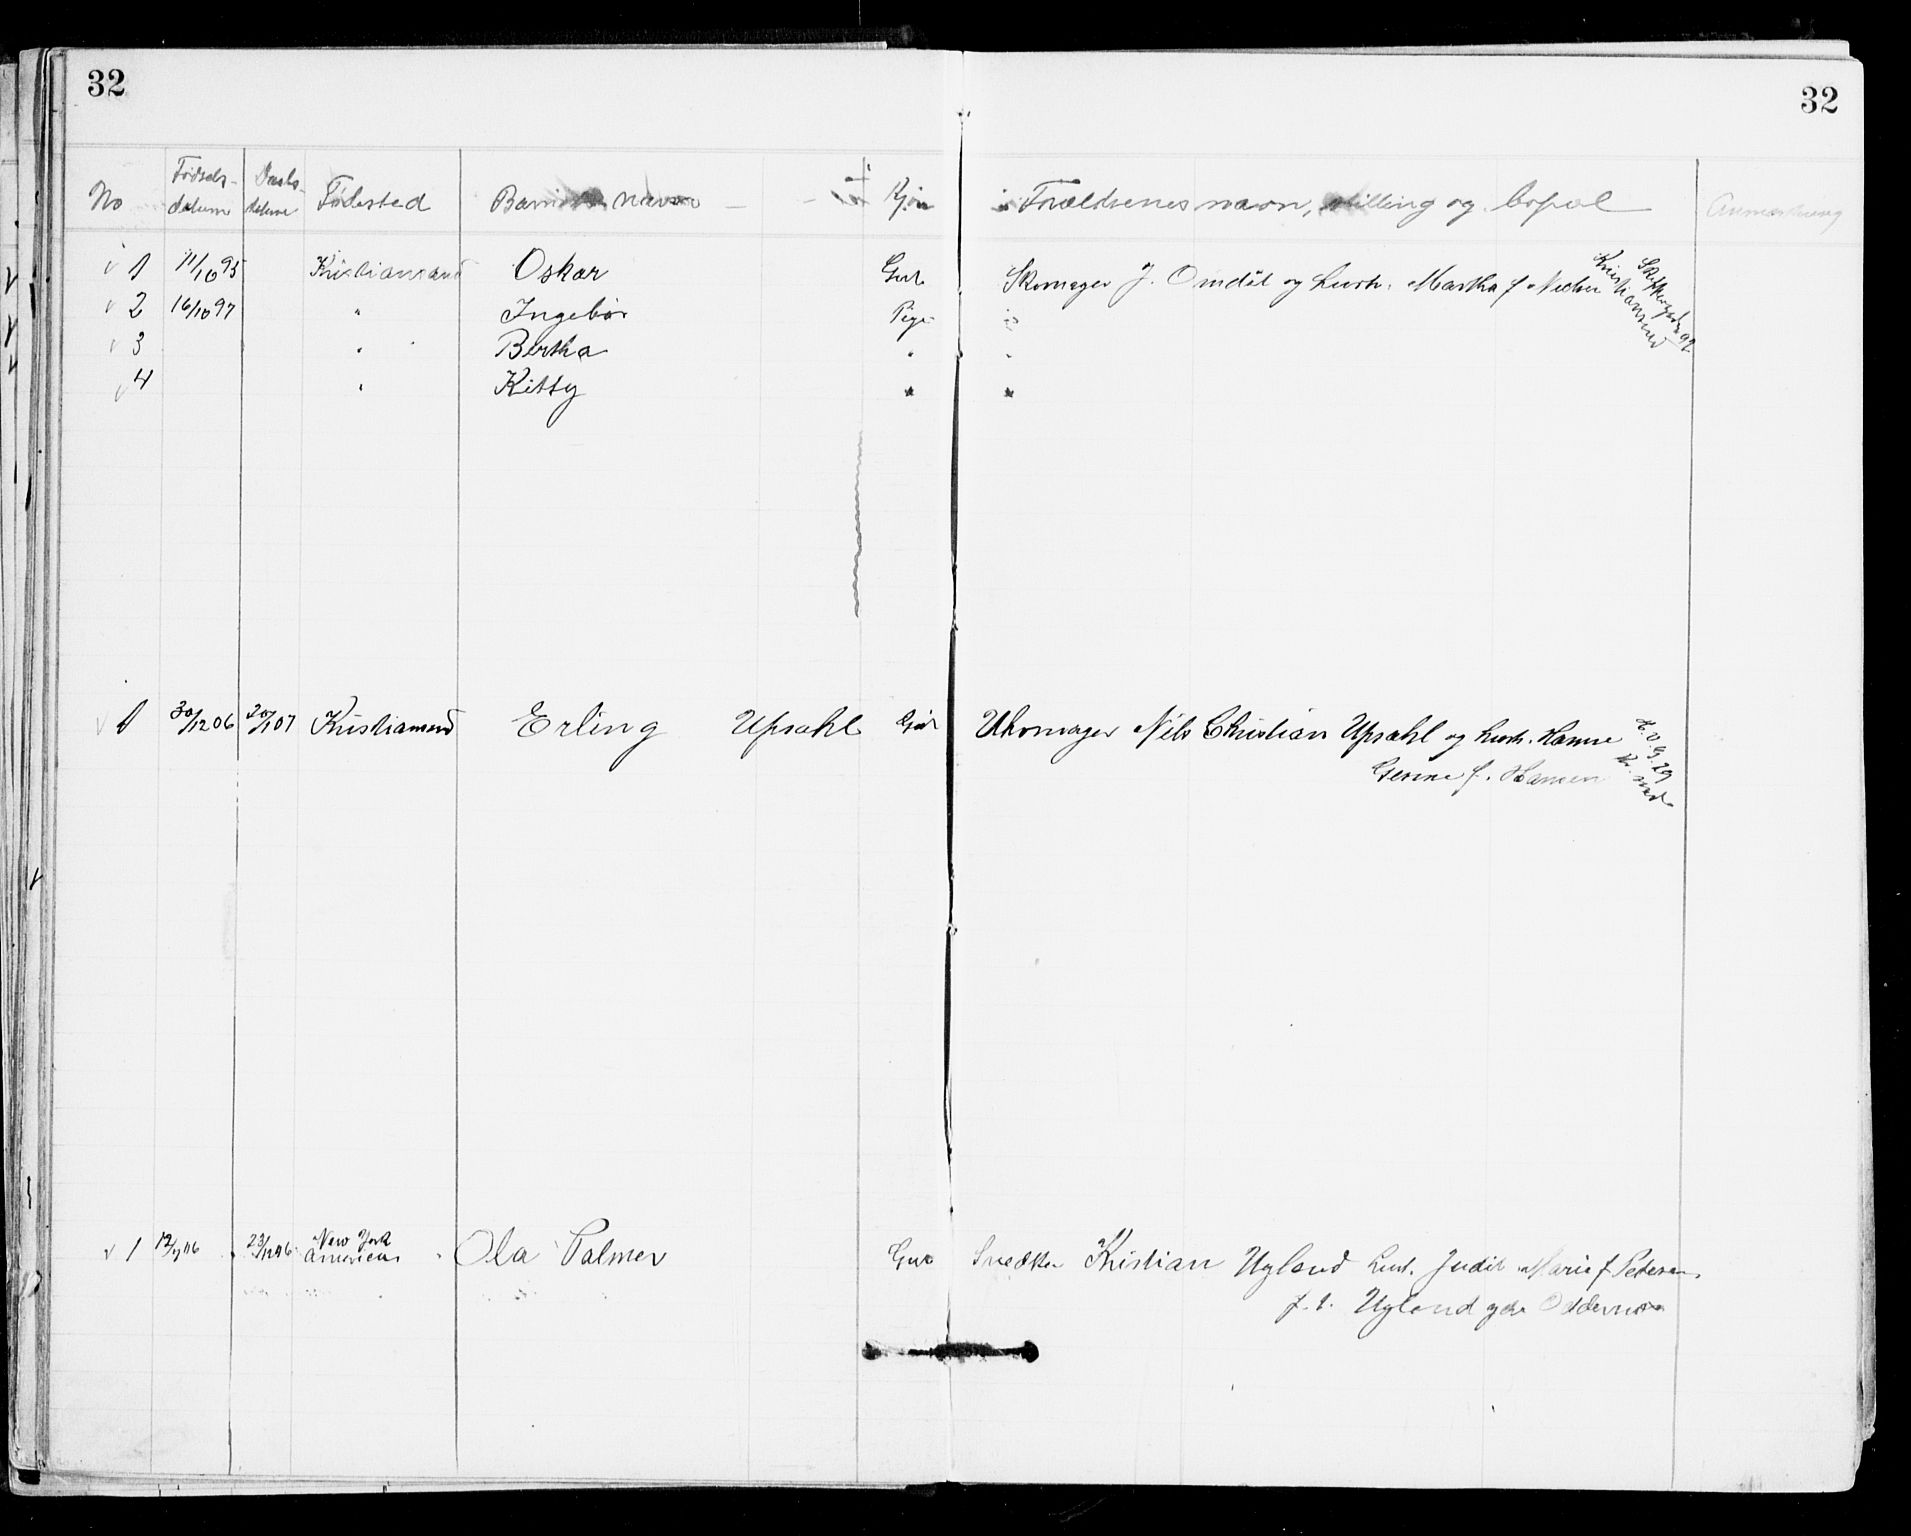 32 32
No Fødsels- datum Daabs- datum Fødested Barnets navn Kjøn Forældrenes navn, stilling og bopæl Anmerkning
1 11/10 95 Kristiansand Oskar Gut Skomager J. Omdal og hustr. Martha f
Kristiansand
2 16/10 97 " Ingebor Pige "
3 " Bertha " "
4 " Kitty " "
1 30/12 06 20/1 07 Kristiansand Erling Upsahl Gut Uhrmager Nils Christian Upsahl og hustr. Hanne
Gesine f. Hansen
H. V. G. 29
Kr. sand
1 12/7 06 23/12 06 New York Amerika Ola Palmer Gut Snedker Kristian Ugland hust. Judit Marie f Petersen
f. t. Ugland Oddernes